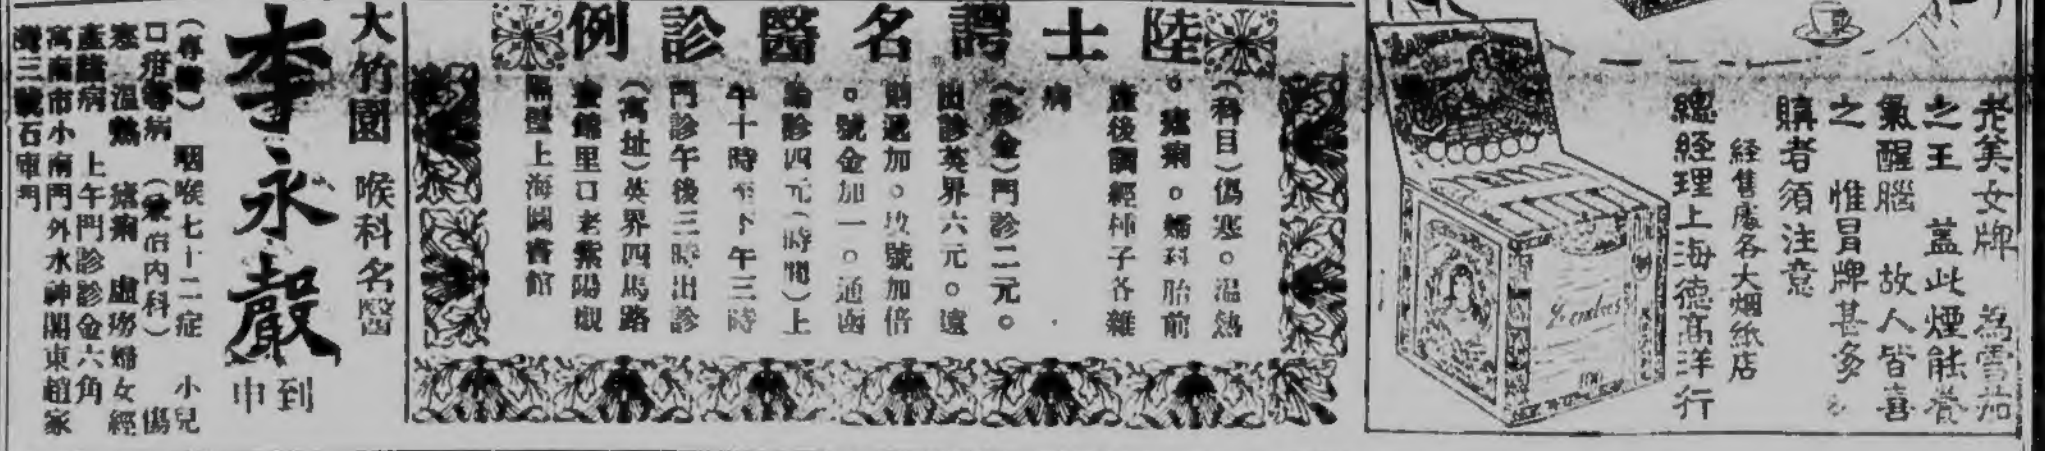 老美女牌　為雪茄
之王　蓋此煙能養
氣醒腦　故人皆喜
之　惟冒牌甚多
購者須注意
経售處各大烟紙店
總經理上海德高洋行
陸士諤名醫診例
（科目）傷寒。温熱
。瘧痢。婦科胎前
產後調經種子各雜
病
（診金）門診二元。
出診英界六元。遠
則遞加。拔號加倍
。號金加一。通函
論診四元（時間）上
午十時至下午三時
門診午後三時出診
（寓址）英界四馬路
畫錦里口老紫陽觀
隔壁上海圖書館
大竹園　喉科名醫
李永嚴
到申
（專醫）咽喉七十二症　小兒
口疳等病　（兼治内科）　傷
寒　温熱　瘧痢　虛癆婦女經
產雜病　上午門診診金六角
寓南市小南門外水神閣東趙家
灣三號石庫門